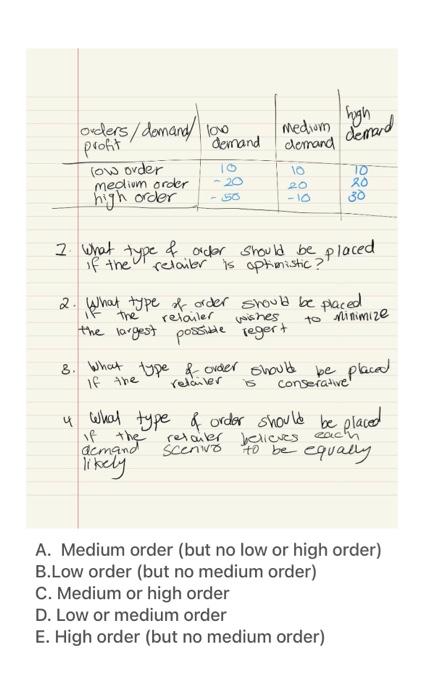 orders/demand/ low medium high
profit demand demand demand
low order 10 10 10
medium order -20 20 20
high order -50 -10 30
1. What type of order should be placed
if the retailer is optimistic?
2. What type of order should be placed
if the retailer wishes to minimize
the largest possible regert
3. What type of order should be placed
if the retailer is conserative
4 What type of order should be placed
if the retailer believes each
demand scenivo to be equally
likely
A. Medium order (but no low or high order)
B.Low order (but no medium order)
C. Medium or high order
D. Low or medium order
E. High order (but no medium order)